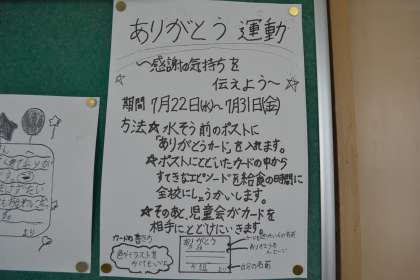 ありがとう運動
～感謝の気持ちを
伝えよう～
期間 7月22日(水)～7月31日(金)
方法☆水そう前のポストに
「ありがとうカード」を入れます。
☆ポストにとどいたカードの中から
すてきなエピソードを給食の時間に
全校にしょうかいします。
☆そのあと、児童会がカードを
相手にとどけにいきます。
カードの書き方
ありがとう
より
自分の名前